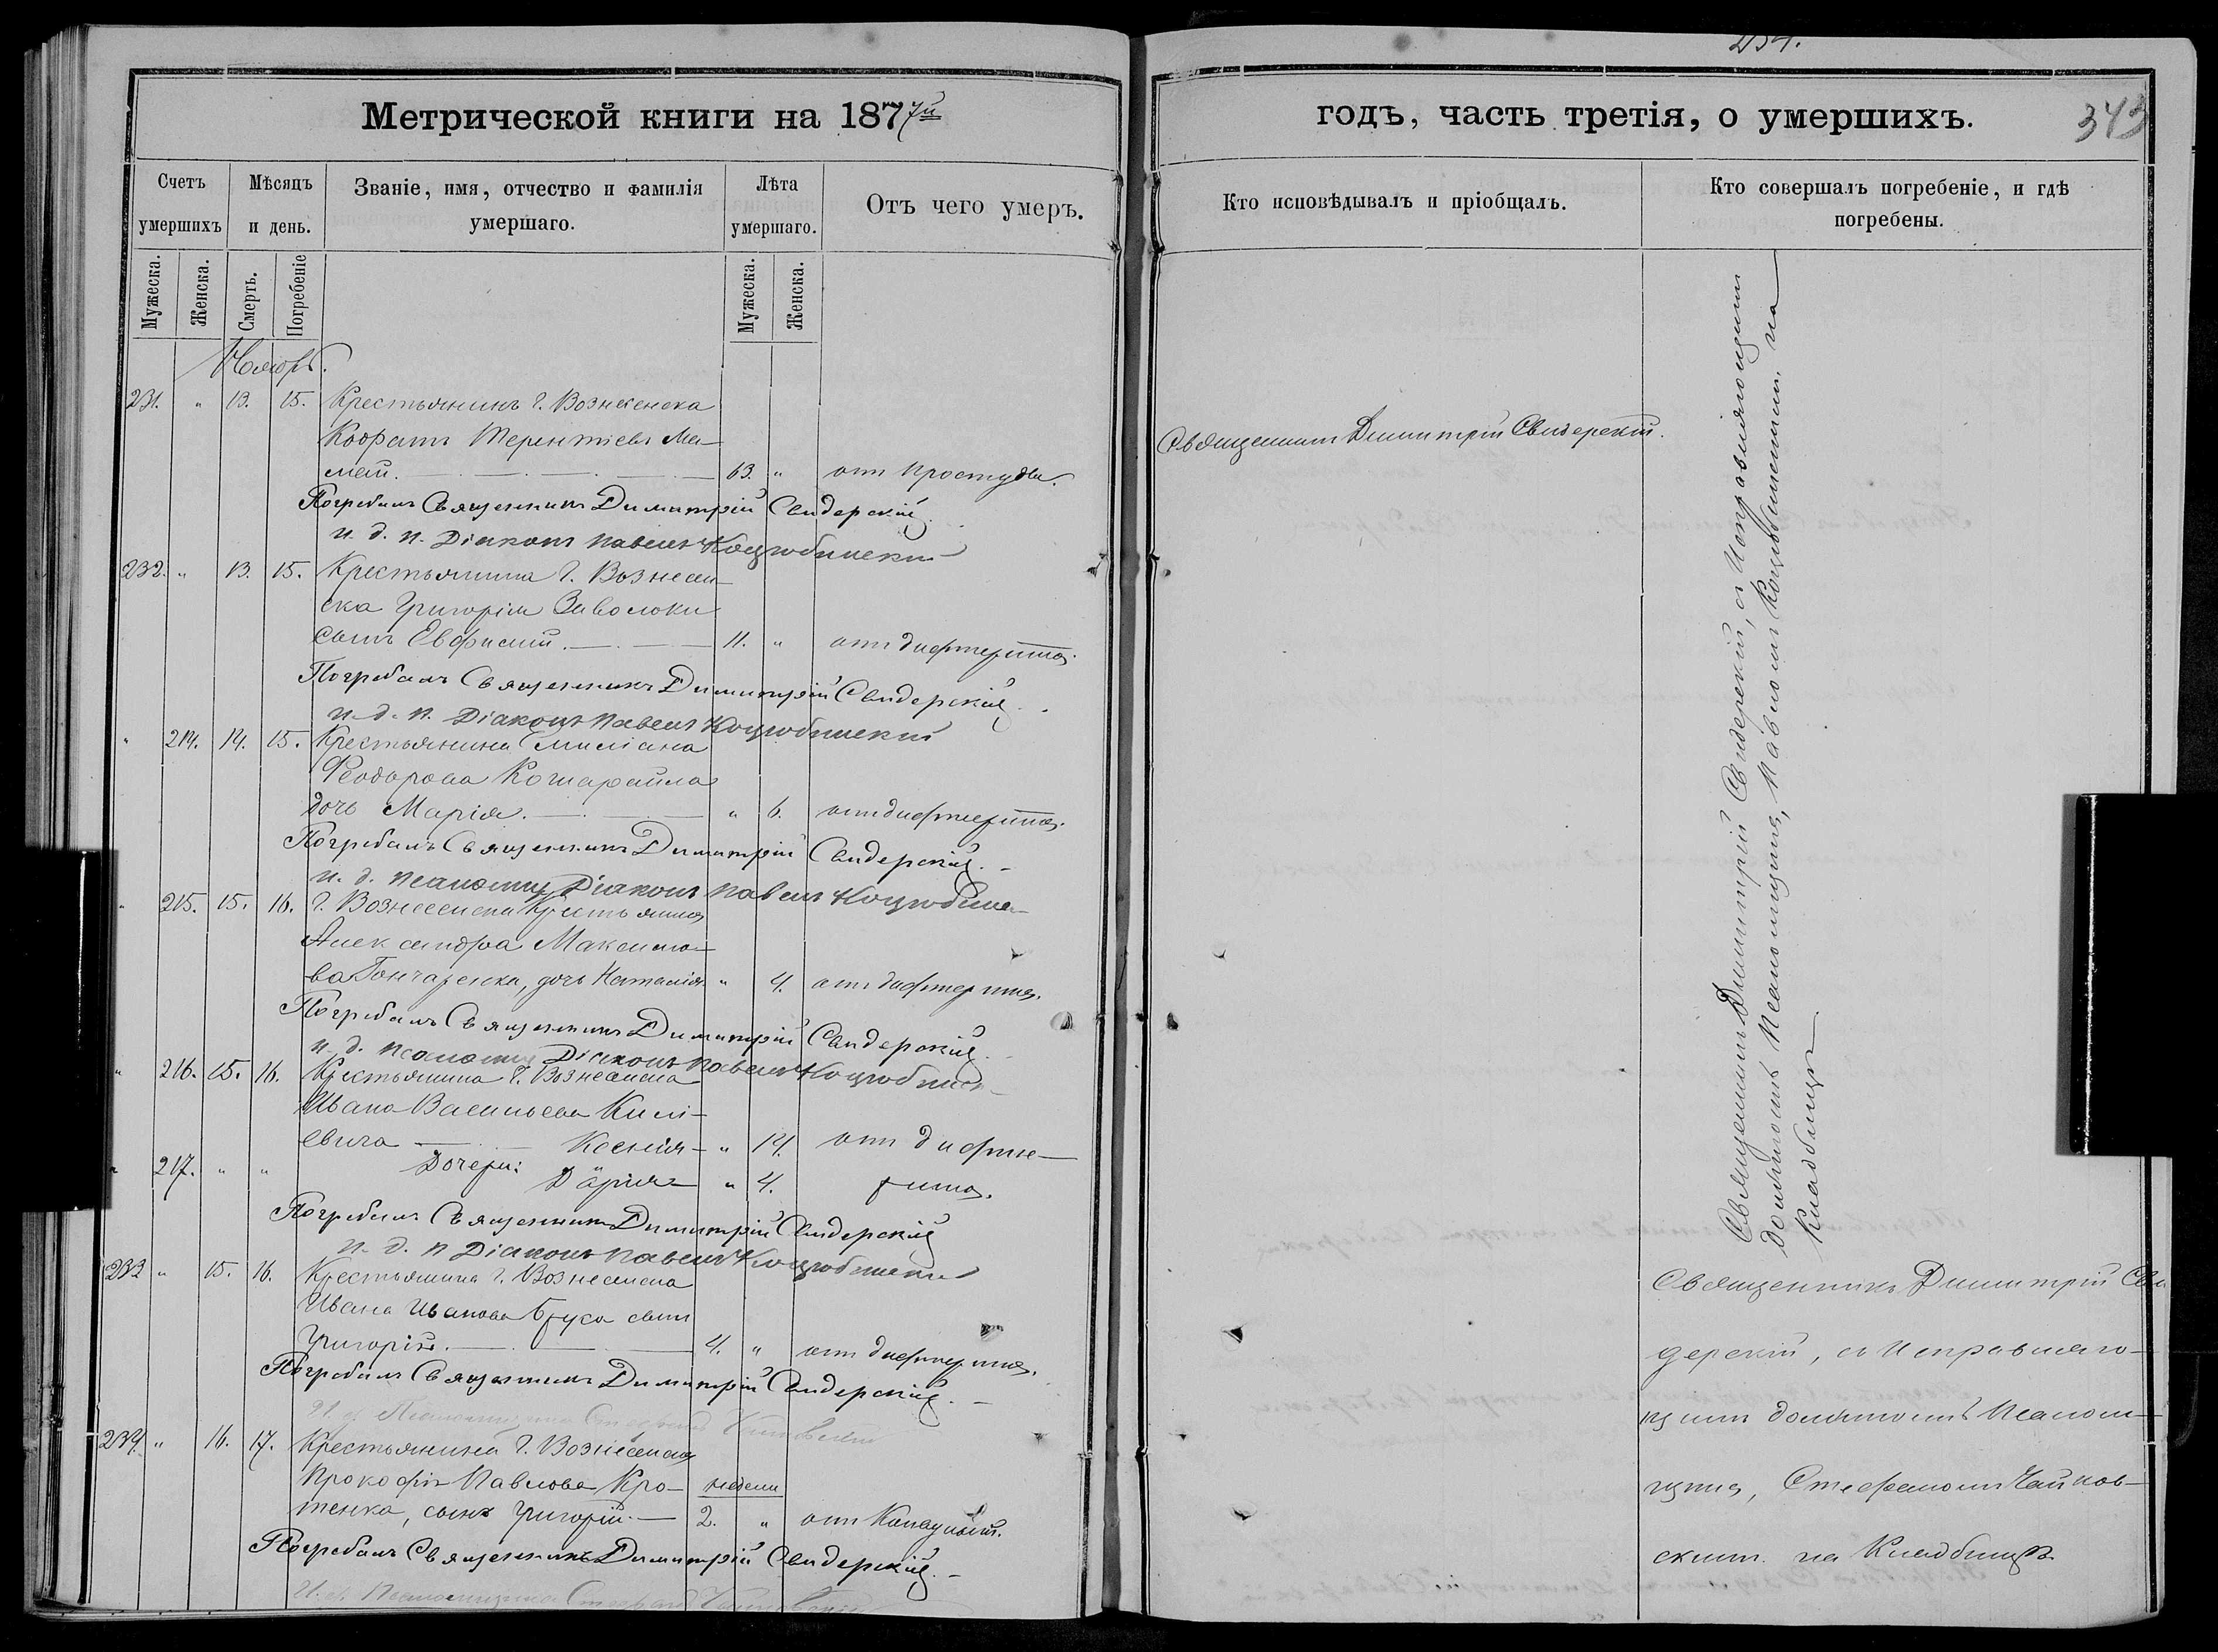 Метрической книги на 1877й
Счетъ умершихъ
Мѣсяцъ и день.
Званіе, имя, отчество и фамилія умершаго.
Лѣта умершаго.
Отъ чего умеръ.
Мужеска.
Женска.
Смерть.
Погребеніе
Мужеска.
Женска.
Ноябрь.
231. " 13. 15. Крестьянинъ г. Вознесенска
Кодратъ Терентіевъ Ма-
май. 63. " отъ простуды.
Погребалъ Священникъ Димитрій Свидерскій
и. д. п. Діаконъ Павелъ Коцюбинскій
232. " 13. 15. Крестьянина г. Вознесен-
ска Григорія Заволоки
сынъ Евфимій. 11. " отъ дифтерита.
Погребалъ Священникъ Димитрій Свидерскій.
и. д. п. Діаконъ Павелъ Коцюбинскій
" 214. 14. 15. Крестьянина Емиліана
Феодорова
дочь Марія. " 6. отъ дифтерита.
Погребалъ Священникъ Димитрій Свидерскій.
и. д. псаломщ Діаконъ Павелъ Коцюбинс
" 215. 15. 16. г. Вознесенска Крестьянина
Александра Максимо-
ва Гончаренка, дочь Наталія " 4. отъ дифтерита.
Погребалъ Священникъ Димитрій Свидерскій.
и. д. псаломщ Діаконъ Павелъ Коцюбинс
" 216. 15. 16. Крестьянина г. Вознесенска
Ивана Васильева Кили-
евича Ксенія " 14. отъ дифте-
" 217. " " Дочери: Дарія " 4. рита.
Погребалъ Священникъ Димитрій Свидерскій
и. д. п Діаконъ Павелъ Коцюбинскій
233 " 15. 16. Крестьянина г. Вознесенска
Ивана Иванова Бруса сынъ
Григорій. 4. " отъ дифтерита.
Погребалъ Священникъ Димитрій Свидерскій.
И. д. Псаломщика Стефанъ Чайковскій
234. " 16. 17. Крестьянина г. Вознесенска
Прокофія Павлова Кро- недели
тенка, сынъ Григорій. 2. " отъ
Погребалъ Священникъ Димитрій Свидерскій.
И. д. Псаломщика Стефанъ Чайковскій
234.
годъ, часть третія, о умершихъ.
343
Кто исповѣдывалъ и пріобщалъ.
Кто совершалъ погребеніе, и гдѣ погребены.
Священникъ Димитрій Свидерскій.
Священникъ Димитрій Свидерскій, съ Исправляющимъ
должность Псаломщика, Павломъ Коцюбинскимъ. на
Кладбищѣ
Священникъ Димитрій Сви
дерскій, съ Исправляю-
щимъ должность Псалом-
щика, Стефаномъ Чайков-
скимъ. на Кладбищѣ